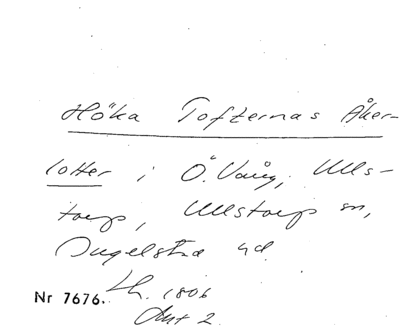 Höka Tofternas Åker-
lotter i Ö. Vång, Ulls-
torp, Ullstorp sn,
Ingelstad hd
Lh. 1806
Akt 2
Nr 7676.